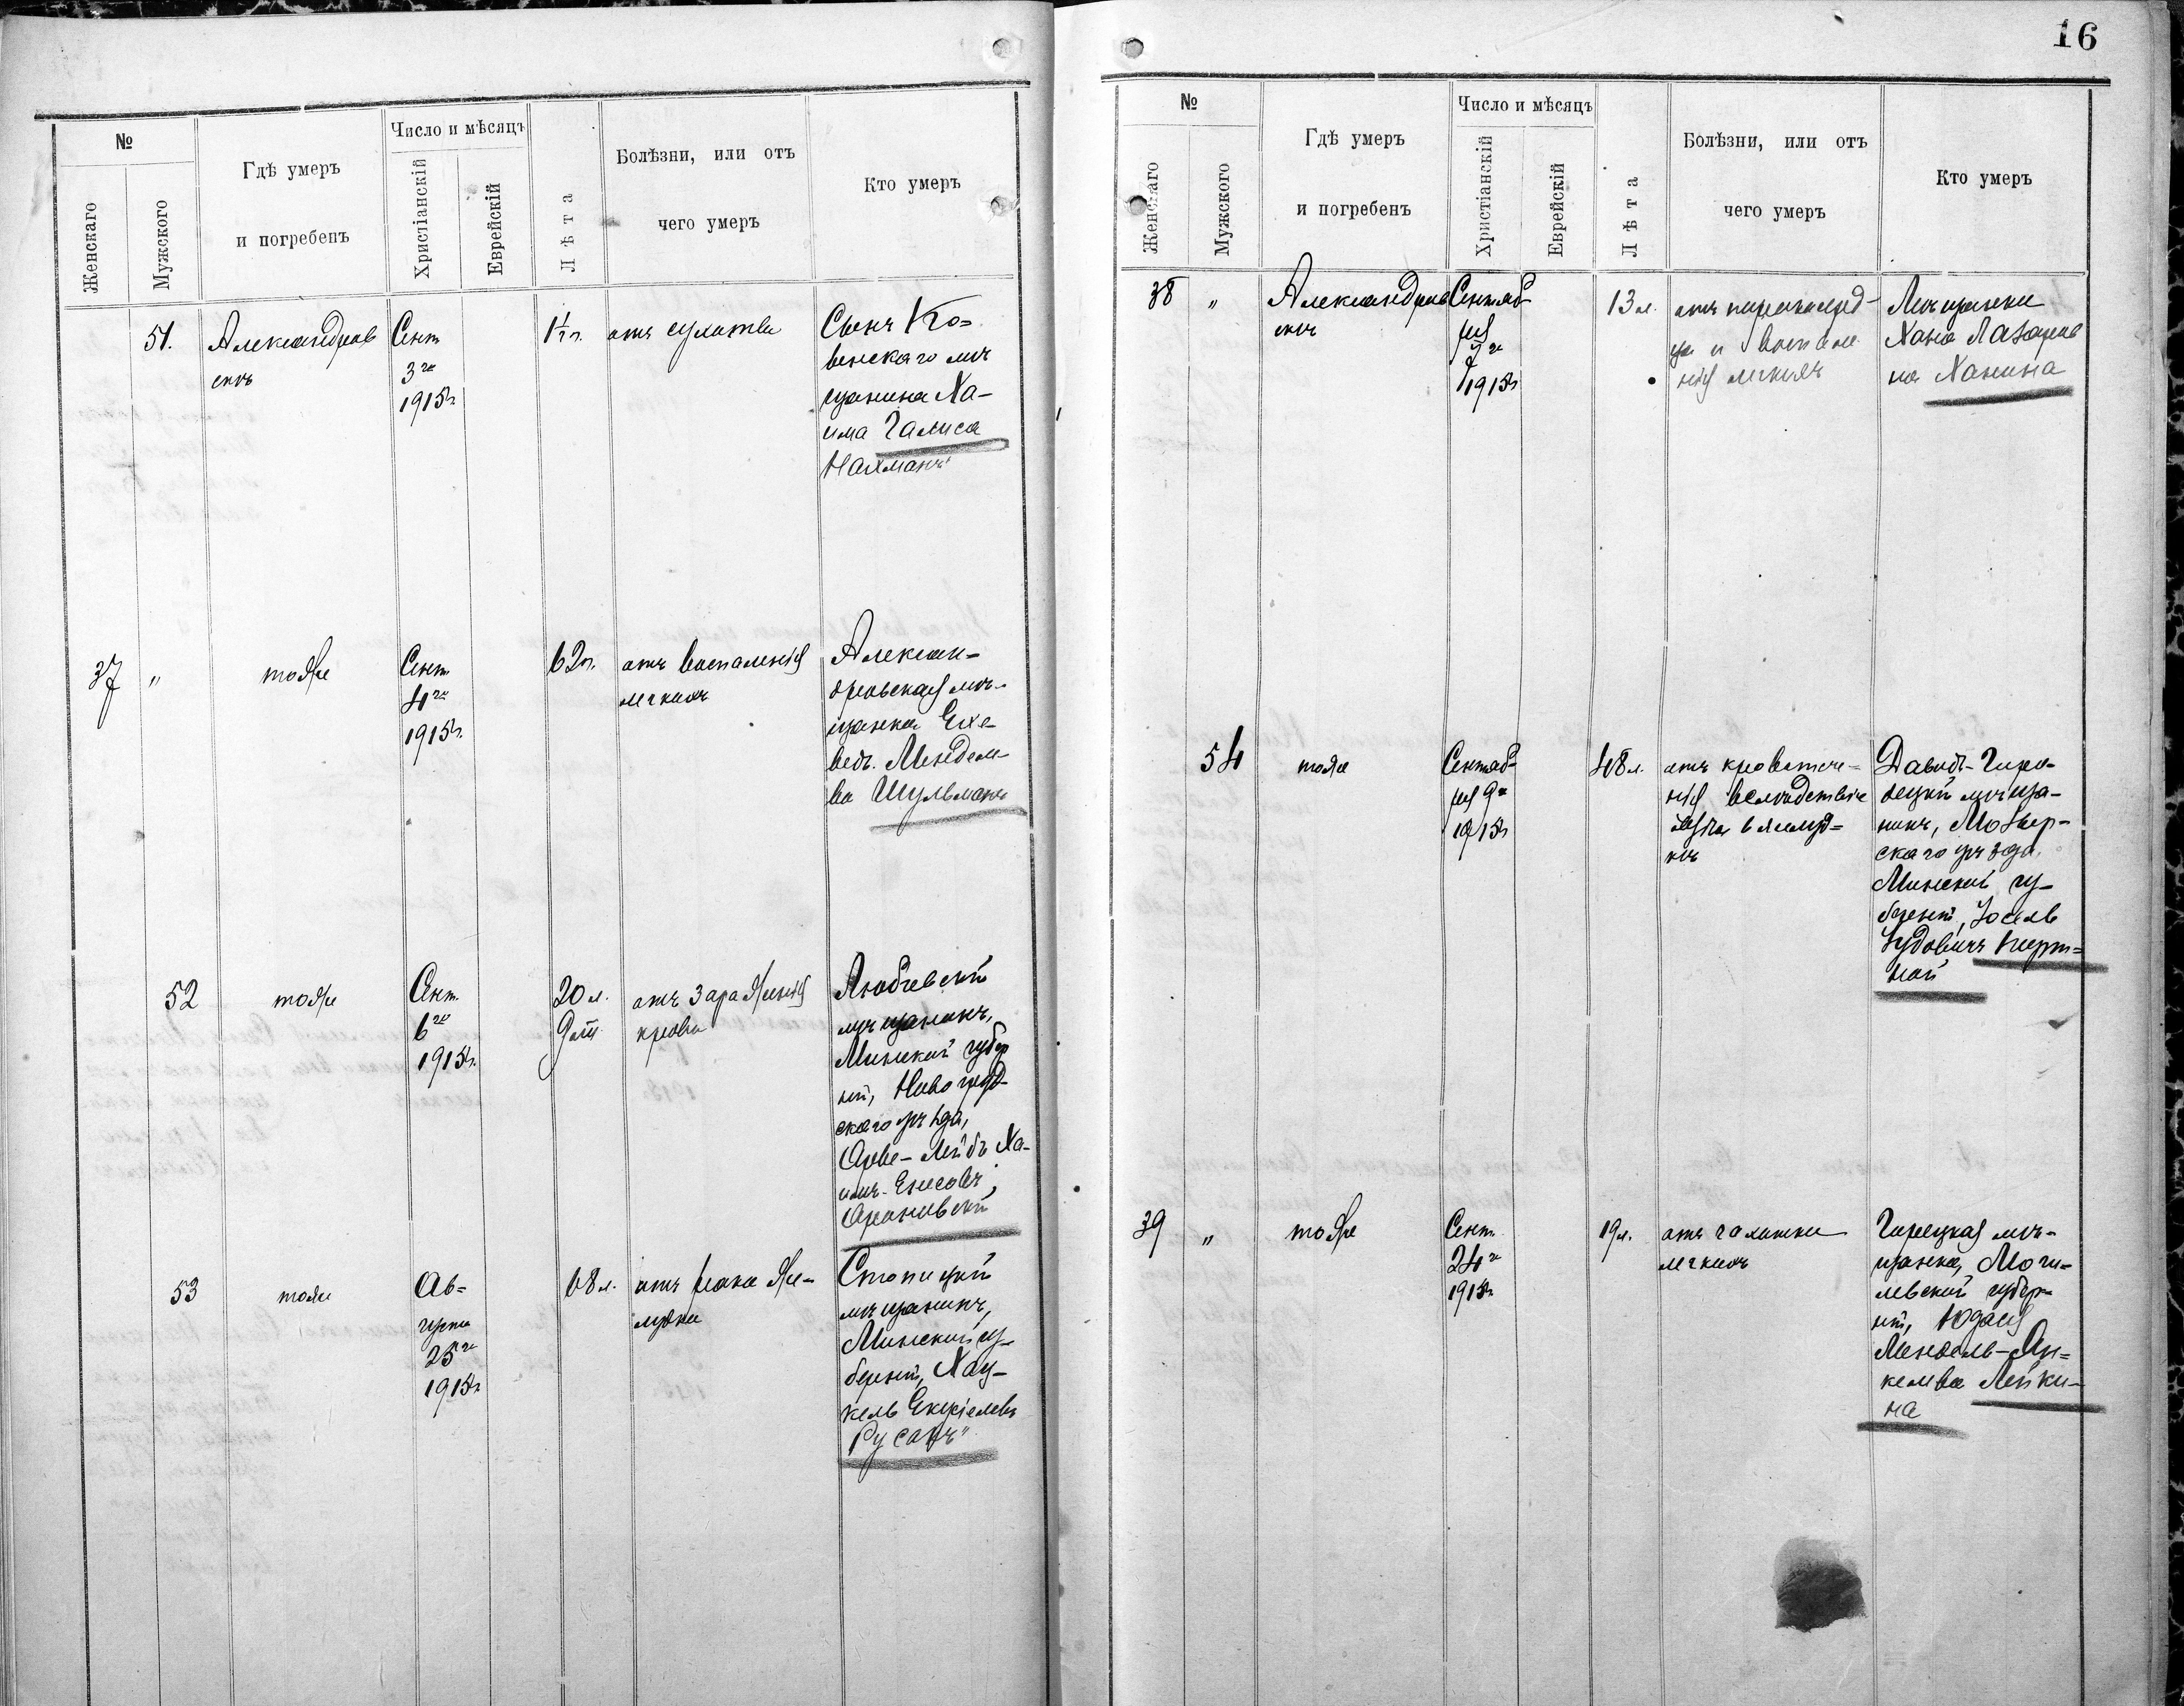 №
Женскаго
Мужского
Гдѣ умеръ
и погребенъ
Число и мѣсяцъ
Христіанскій
Еврейскій
Лѣта
Болѣзни, или отъ
чего умеръ
Кто умеръ
51.
Александров
скъ
Сент
3го
1915г
1½ г.
отъ сухотки
Сынъ Ко=
венскаго мѣ
щанина Ха-
има Галиса
Нахманъ
37
"
тоже
Сент
4го
1915г.
62 г.
отъ воспаленія
легкихъ
Алексан-
дровская мѣ-
щанка Ехе-
ведъ Мендем-
ва Шульманъ
52
тоже
Сент.
6го
1915г.
20 л.
9 м.
отъ зараженія
крови
Любчевскій
мѣщанинъ,
Минской губер
ніи, Новогруд-
скаго уѣзда,
Орве-Лейбъ Ха-
имъ-Енсовъ
Ороновскій
53
тоже
Ав=
густа
25го
1915г
68 л.
отъ рака же-
лудка
Столицкій
мѣщанинъ,
Минской гу-
берніи, Хац-
кель Екусіелевъ
Русакъ"
16
№
Женскаго
Мужского
Гдѣ умеръ
и погребенъ
Число и мѣсяцъ
Христіанскій
Еврейскій
Лѣта
Болѣзни, или отъ
чего умеръ
Кто умеръ
38
"
Александров
скъ
Сентяб
ря
7го
1915г
13 л.
отъ порока серд-
ца и воспале
нія легкихъ
Мѣщанка
Хана Лазарев
на Ханина
54
тоже
Сентяб-
ря 9го
1915г
48 л.
отъ кровотече-
нія вслѣдствіе
язвы в желуд=
кѣ
Давидъ-Горо-
децкій мѣща-
нинъ, Мозыр-
скаго уѣзда
Минской гу-
берніи, Іосель
Іудовичъ Порт=
ной
39
"
тоже
Сент.
24го
1915г
19 л.
отъ чахотки
легкихъ
Горецкая мѣ-
щанка, Моги-
левской губер-
ніи, Юдася
Мендель-Ян=
келева Лейки-
на